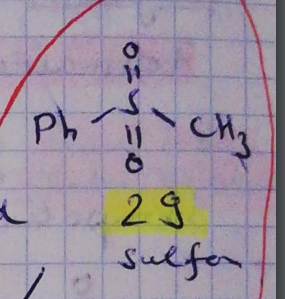 O
||
Ph - S - CH3
||
O
29
sulfon